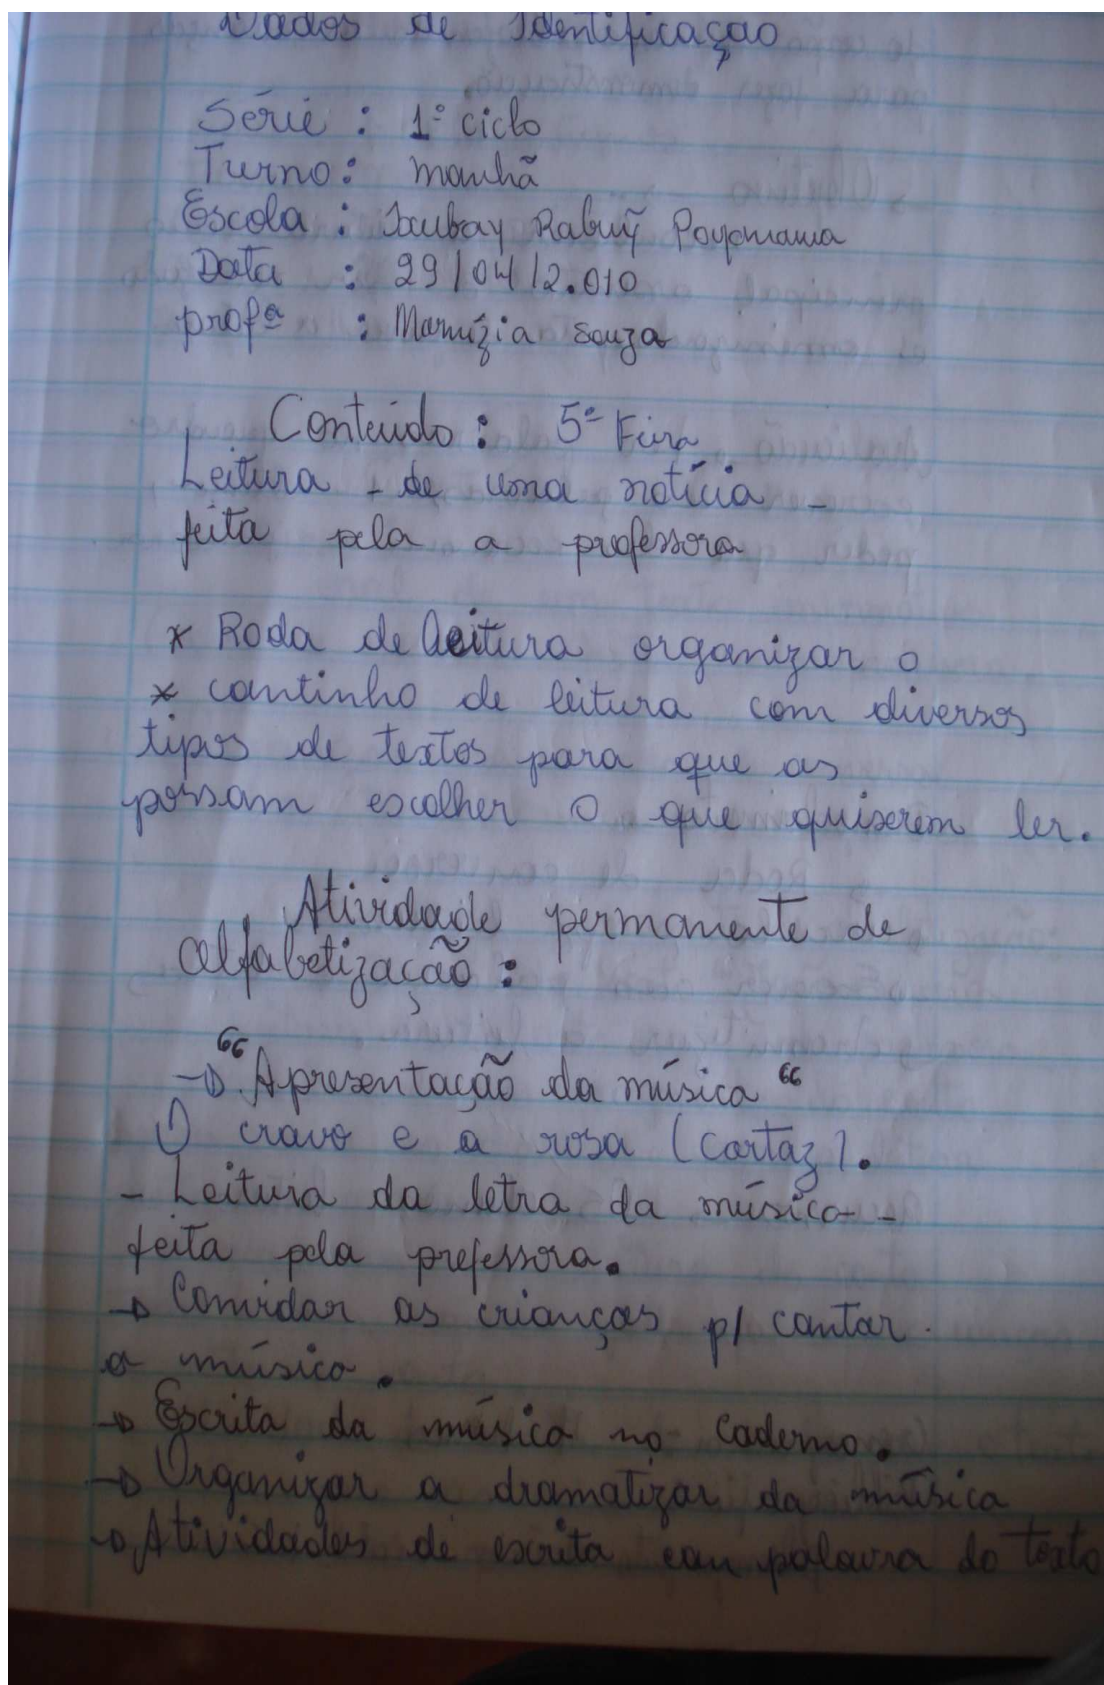 Dados de Identificação
Série : 1º ciclo
Turno : manhã
Escola : Ixubay Rabuĩ Poyanawa
Data : 29/04/2.010
profª : Marnízia Souza
Conteúdo : 5ª Feira
Leitura - de uma notícia -
feita pela a professora
* Roda de leitura organizar o
* cantinho de leitura com diversos
tipos de textos para que as
possam escolher o que quiserem ler.
Atividade permanente de
alfabetização :
→ "Apresentação da música "
O cravo e a rosa (cartaz).
- Leitura da letra da música -
feita pela prefessora.
→ Convidar as crianças p/ cantar.
a música.
→ Escrita da música no caderno.
→ Organizar a dramatizar da música
→ Atividades de escrita com palavra do texto